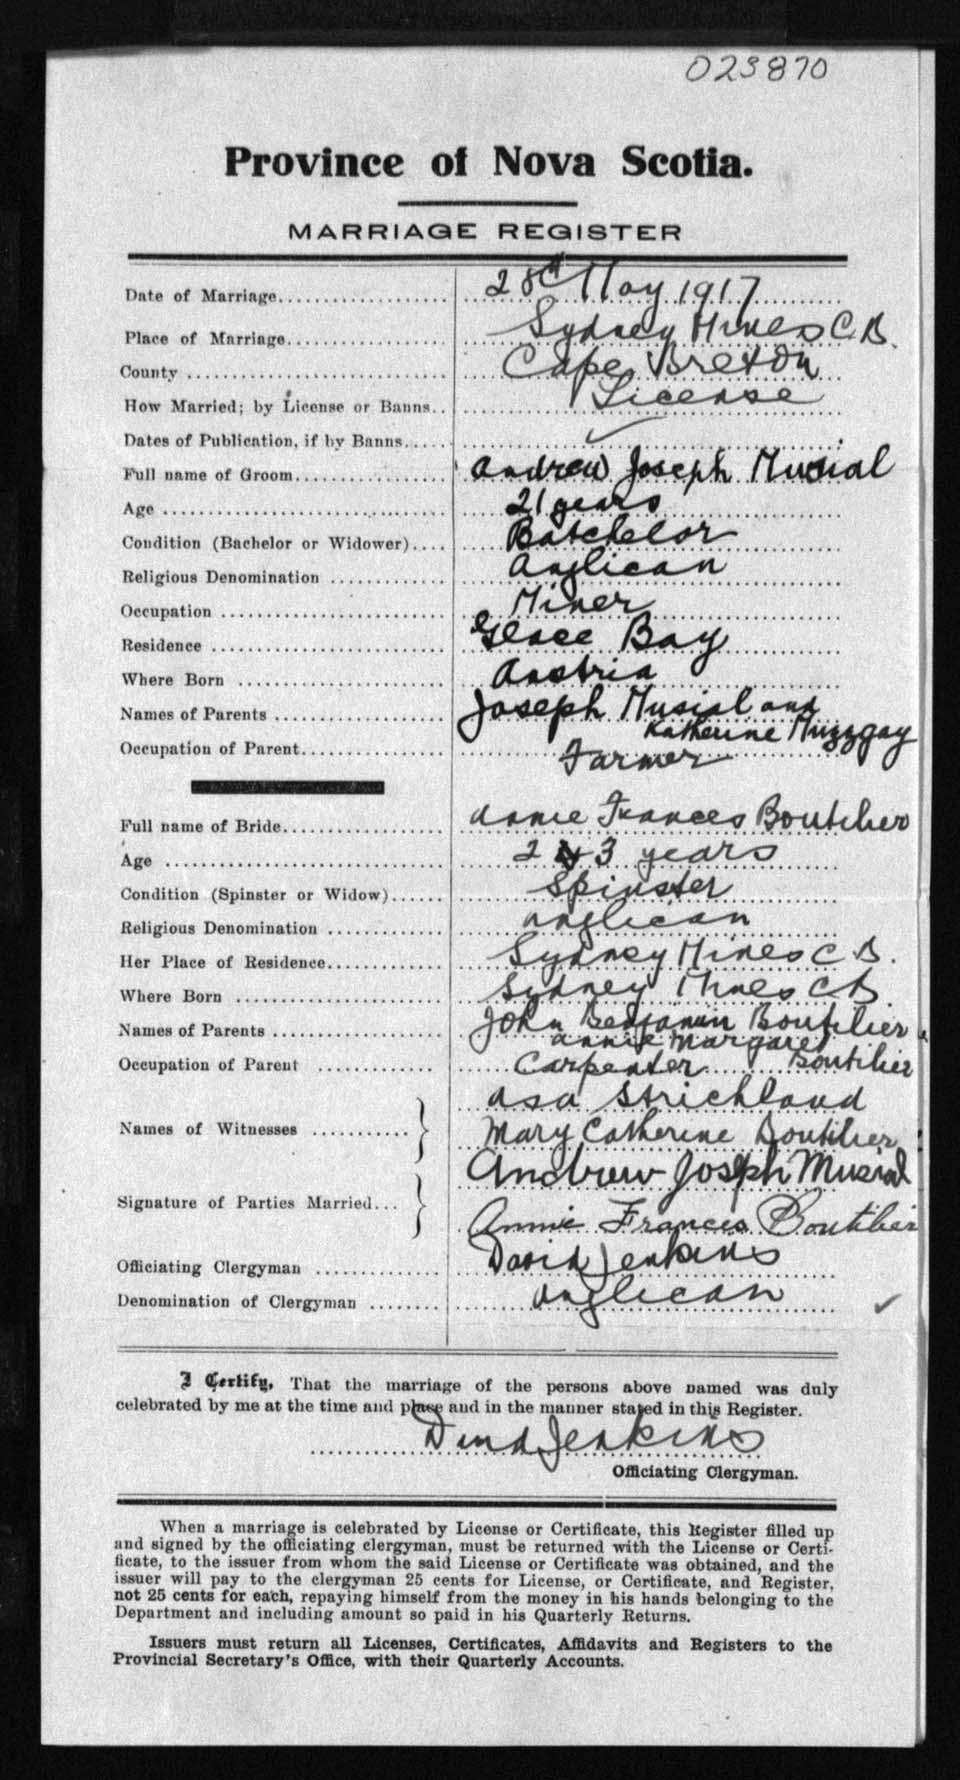 023870
Province of Nova Scotia.
MARRIAGE REGISTER
Date of Marriage 28th May 1917
Place of Marriage Sydney Mines C.B.
County Cape Breton
How Married; by License or Banns License
Dates of Publication, if by Banns
Full name of Groom Andrew Joseph Musial
Age 21 years
Condition (Bachelor or Widower) Batchelor
Religious Denomination Anglican
Occupation Miner
Residence Glace Bay
Where Born Austria
Names of Parents Joseph Musial and
Katherine Muzzgay
Occupation of Parent Farmer
Full name of Bride Annie Frances Boutilier
Age 23 years
Condition (Spinster or Widow) Spinster
Religious Denomination Anglican
Her Place of Residence Sydney Mines C B.
Where Born Sydney Mines C B
Names of Parents John Benjamin Boutilier
Annie Margaret Boutilier
Occupation of Parent Carpenter
Names of Witnesses Asa Strickland
Mary Catherine Boutilier
Signature of Parties Married Andrew Joseph Musial
Annie Frances Boutilier
Officiating Clergyman David Jenkins
Denomination of Clergyman Anglican
I Certify, That the marriage of the persons above named was duly
celebrated by me at the time and place and in the manner stated in this Register.
David Jenkins
Officiating Clergyman.
When a marriage is celebrated by License or Certificate, this Register filled up
and signed by the officiating clergyman, must be returned with the License or Certi-
ficate, to the issuer from whom the said License or Certificate was obtained, and the
issuer will pay to the clergyman 25 cents for License, or Certificate, and Register,
not 25 cents for each, repaying himself from the money in his hands belonging to the
Department and including amount so paid in his Quarterly Returns.
Issuers must return all Licenses, Certificates, Affidavits and Registers to the
Provincial Secretary's Office, with their Quarterly Accounts.